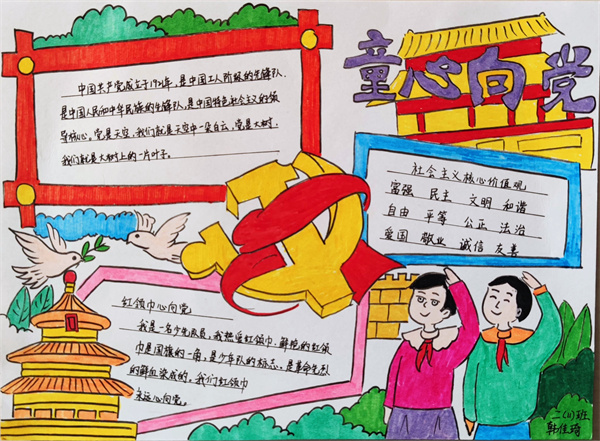 童心向党
中国共产党成立于1921年,是中国工人阶级的先锋队、
是中国人民和中华民族的先锋队,是中国特色社会主义的领
导核心。党是天空,我们就是天空中一朵白云,党是大树,
我们就是大树上的一片叶子。
社会主义核心价值观
富强 民主 文明 和谐
自由 平等 公正 法治
爱国 敬业 诚信 友善
红领巾心向党
我是一名少先队员,我热爱红领巾.鲜艳的红领
巾是国旗的一角,是少年队的标志,是革命先烈
的鲜血染成的。我们红领巾
永远心向党。
二(11)班
韩佳琦